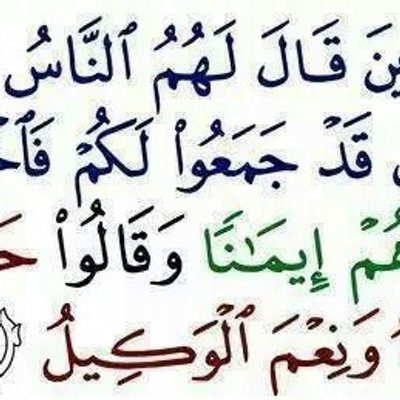 ينَ قَالَ لَهُمُ ٱلنَّاسُ
قَدۡ جَمَعُواْ لَكُمۡ فَٱخۡ
هُمۡ إِيمَٰنٗا وَقَالُواْ حَ
وَنِعۡمَ ٱلۡوَكِيلُ